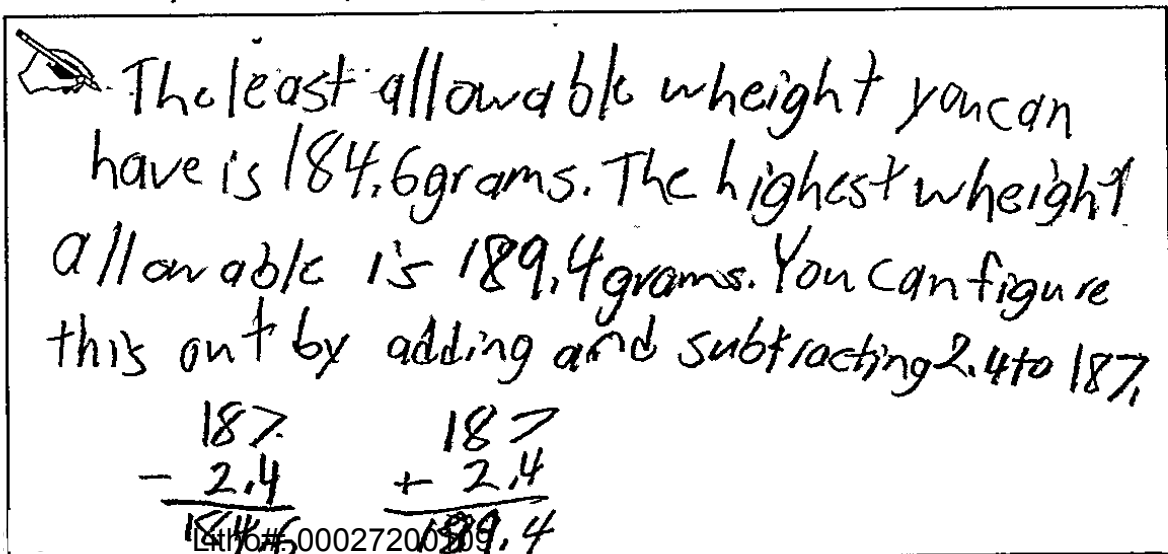 The least allowable wheight you can
have is 184.6 grams. The highest wheight
allowable is 189.4 grams. You can figure
this out by adding and subtracting 2.4 to 187.
187. 187
- 2.4 + 2.4
184.6 189.4
Litho#: